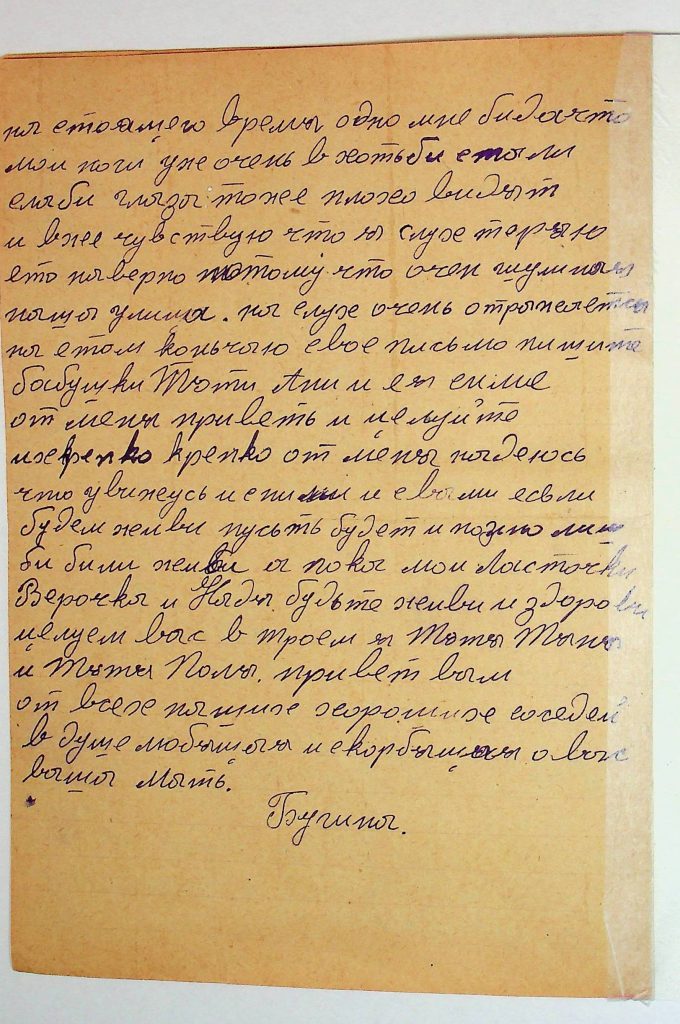 на стоящего время одно мне бида что
мои ноги уже очень в хотьби стали
слаби глаза тоже плохо видят
и вже чувствую что я слух теряю
ето наверно потому что очен шумная
наша улица. на слух очень отражается
на етом кончаю свое письмо пишите
бабушки Тоти Ани и ея симе
от меня приветь и целуйте
их крепко крепко от меня надеюсь
что увижусь и сними и свами есьли
будем живи пусьть будет и позно лиш
би били живи а пока мои Ласточки
Верочка и Надя будьте живи и здорови
целуем вас в троем я Тотя Таня
и Тотя Поля. привет вам
от всех наших хороших соседей
в душе любящая и скорбящая о вас
ваша Мать.
Бугина.